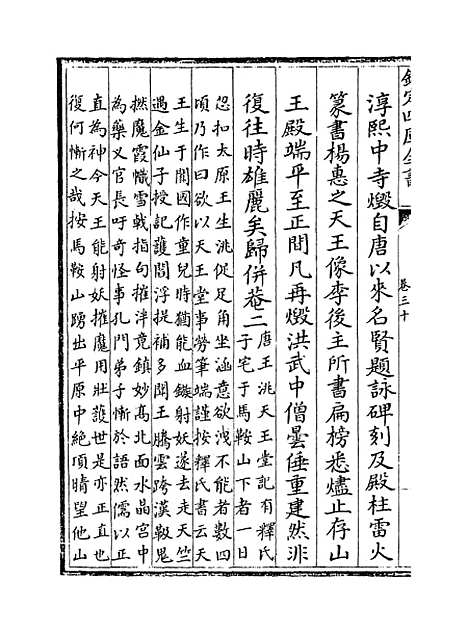 欽定四庫全書
卷三十
淳熙中寺燬自唐以來名賢題詠碑刻及殿柱雷火
篆書楊惠之天王像李後主所書扁榜悉燼止存山
王殿端平至正間凡再燬洪武中僧曇倕重建然非
復往時雄麗矣歸併菴二
唐王洮天王堂記有釋氏
子宅于馬鞍山下者一日
忽扣太原王生洮促足角坐涵意欲洩不能者數四
頃乃作曰欲以天王堂事勞筆端謹按釋氏書云天
王生于闐國作童兒時猶能血鏃射妖遂去走天竺
遇金仙子授記護閻浮提補多聞王騰雲跨漢靸鬼
撚魔霞幟雪戟指句摧洋竟鎮妙髙北面水晶宫中
為藥乂官長吁奇怪事孔門弟子慚於語然儒以正
直為神今天王能射妖摧魔用壯護世是亦正直也
復何慚之哉按馬鞍山踴出平原中絶頂晴望他山